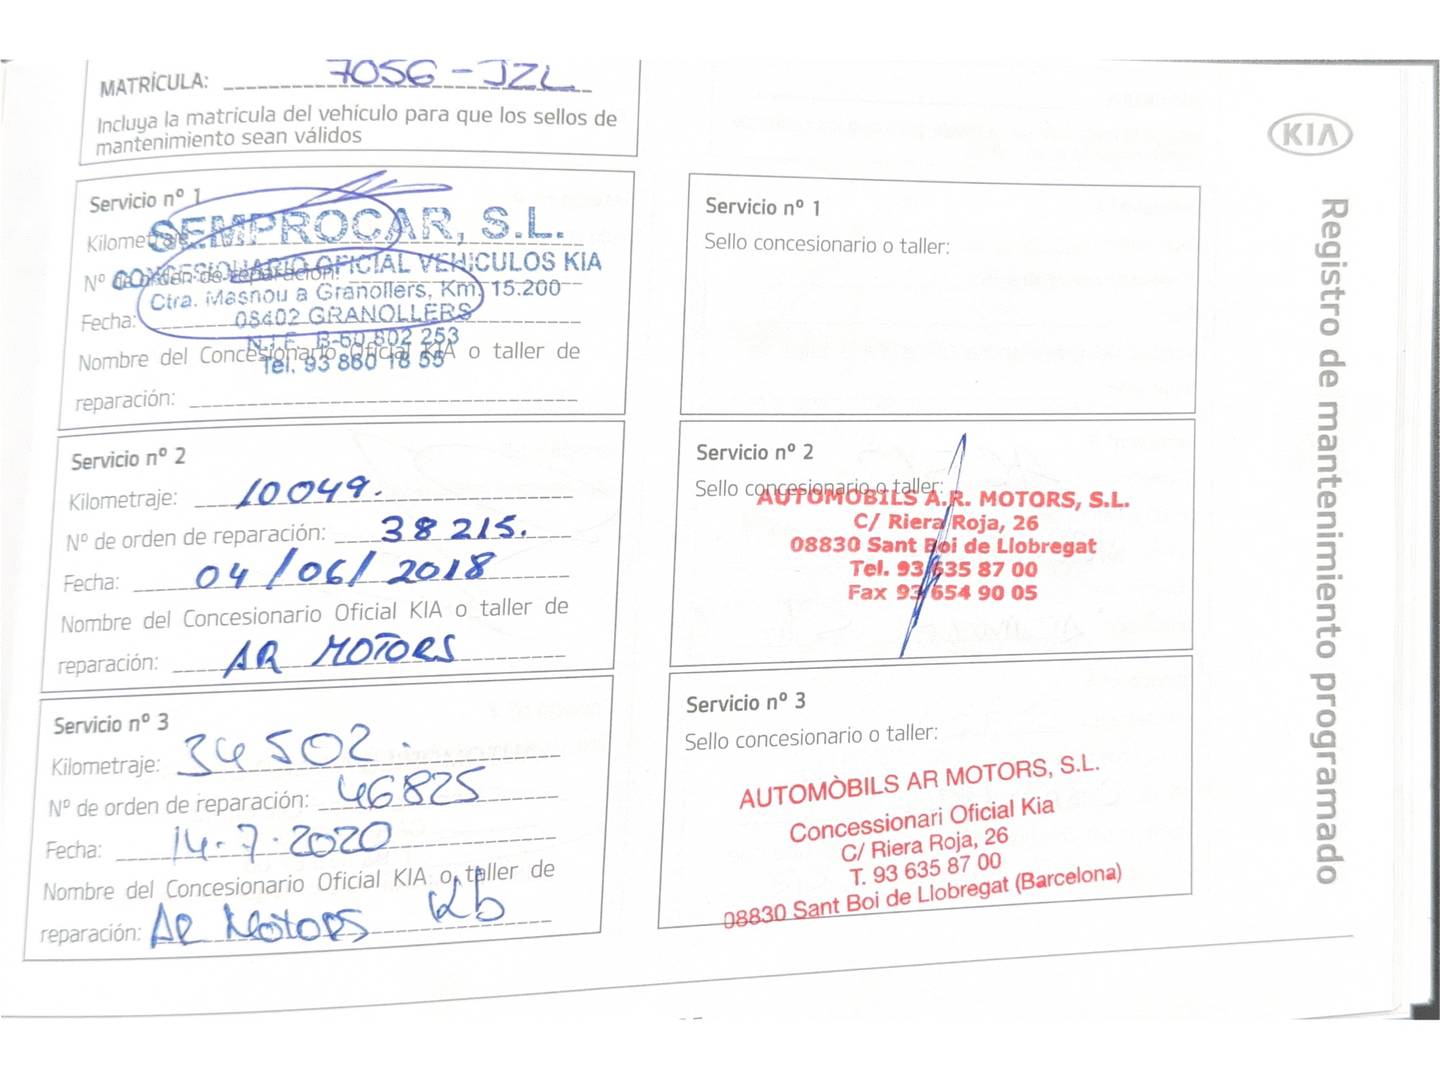 MATRÍCULA: 7056-JZL
Incluya la matricula del vehículo para que los sellos de
mantenimiento sean válidos
KIA
Registro de mantenimiento programado
Servicio nº 1
SEMPROCAR, S.L.
Kilometraje:
CONCESIONARIO OFICIAL VEHICULOS KIA
Nº de orden de reparación:
Ctra. Masnou a Granollers, Km. 15.200
Fecha:
08402 GRANOLLERS
N.I.F. B-60 802 253
Nombre del Concesionario Oficial KIA o taller de
Tel. 93 860 18 55
reparación:
Servicio nº 1
Sello concesionario o taller:
Servicio nº 2
Kilometraje: 10049.
Nº de orden de reparación: 38215.
Fecha: 04/06/2018
Nombre del Concesionario Oficial KIA o taller de
reparación: AR MOTORS
Servicio nº 2
Sello concesionario o taller:
AUTOMOBILS A.R. MOTORS, S.L.
C/ Riera Roja, 26
08830 Sant Boi de Llobregat
Tel. 93 635 87 00
Fax 93 654 90 05
Servicio nº 3
Kilometraje: 34502.
Nº de orden de reparación: 46825
Fecha: 14-7-2020
Nombre del Concesionario Oficial KIA o taller de
reparación: AR Motors
Servicio nº 3
Sello concesionario o taller:
AUTOMÒBILS AR MOTORS, S.L.
Concessionari Oficial Kia
C/ Riera Roja, 26
T. 93 635 87 00
08830 Sant Boi de Llobregat (Barcelona)